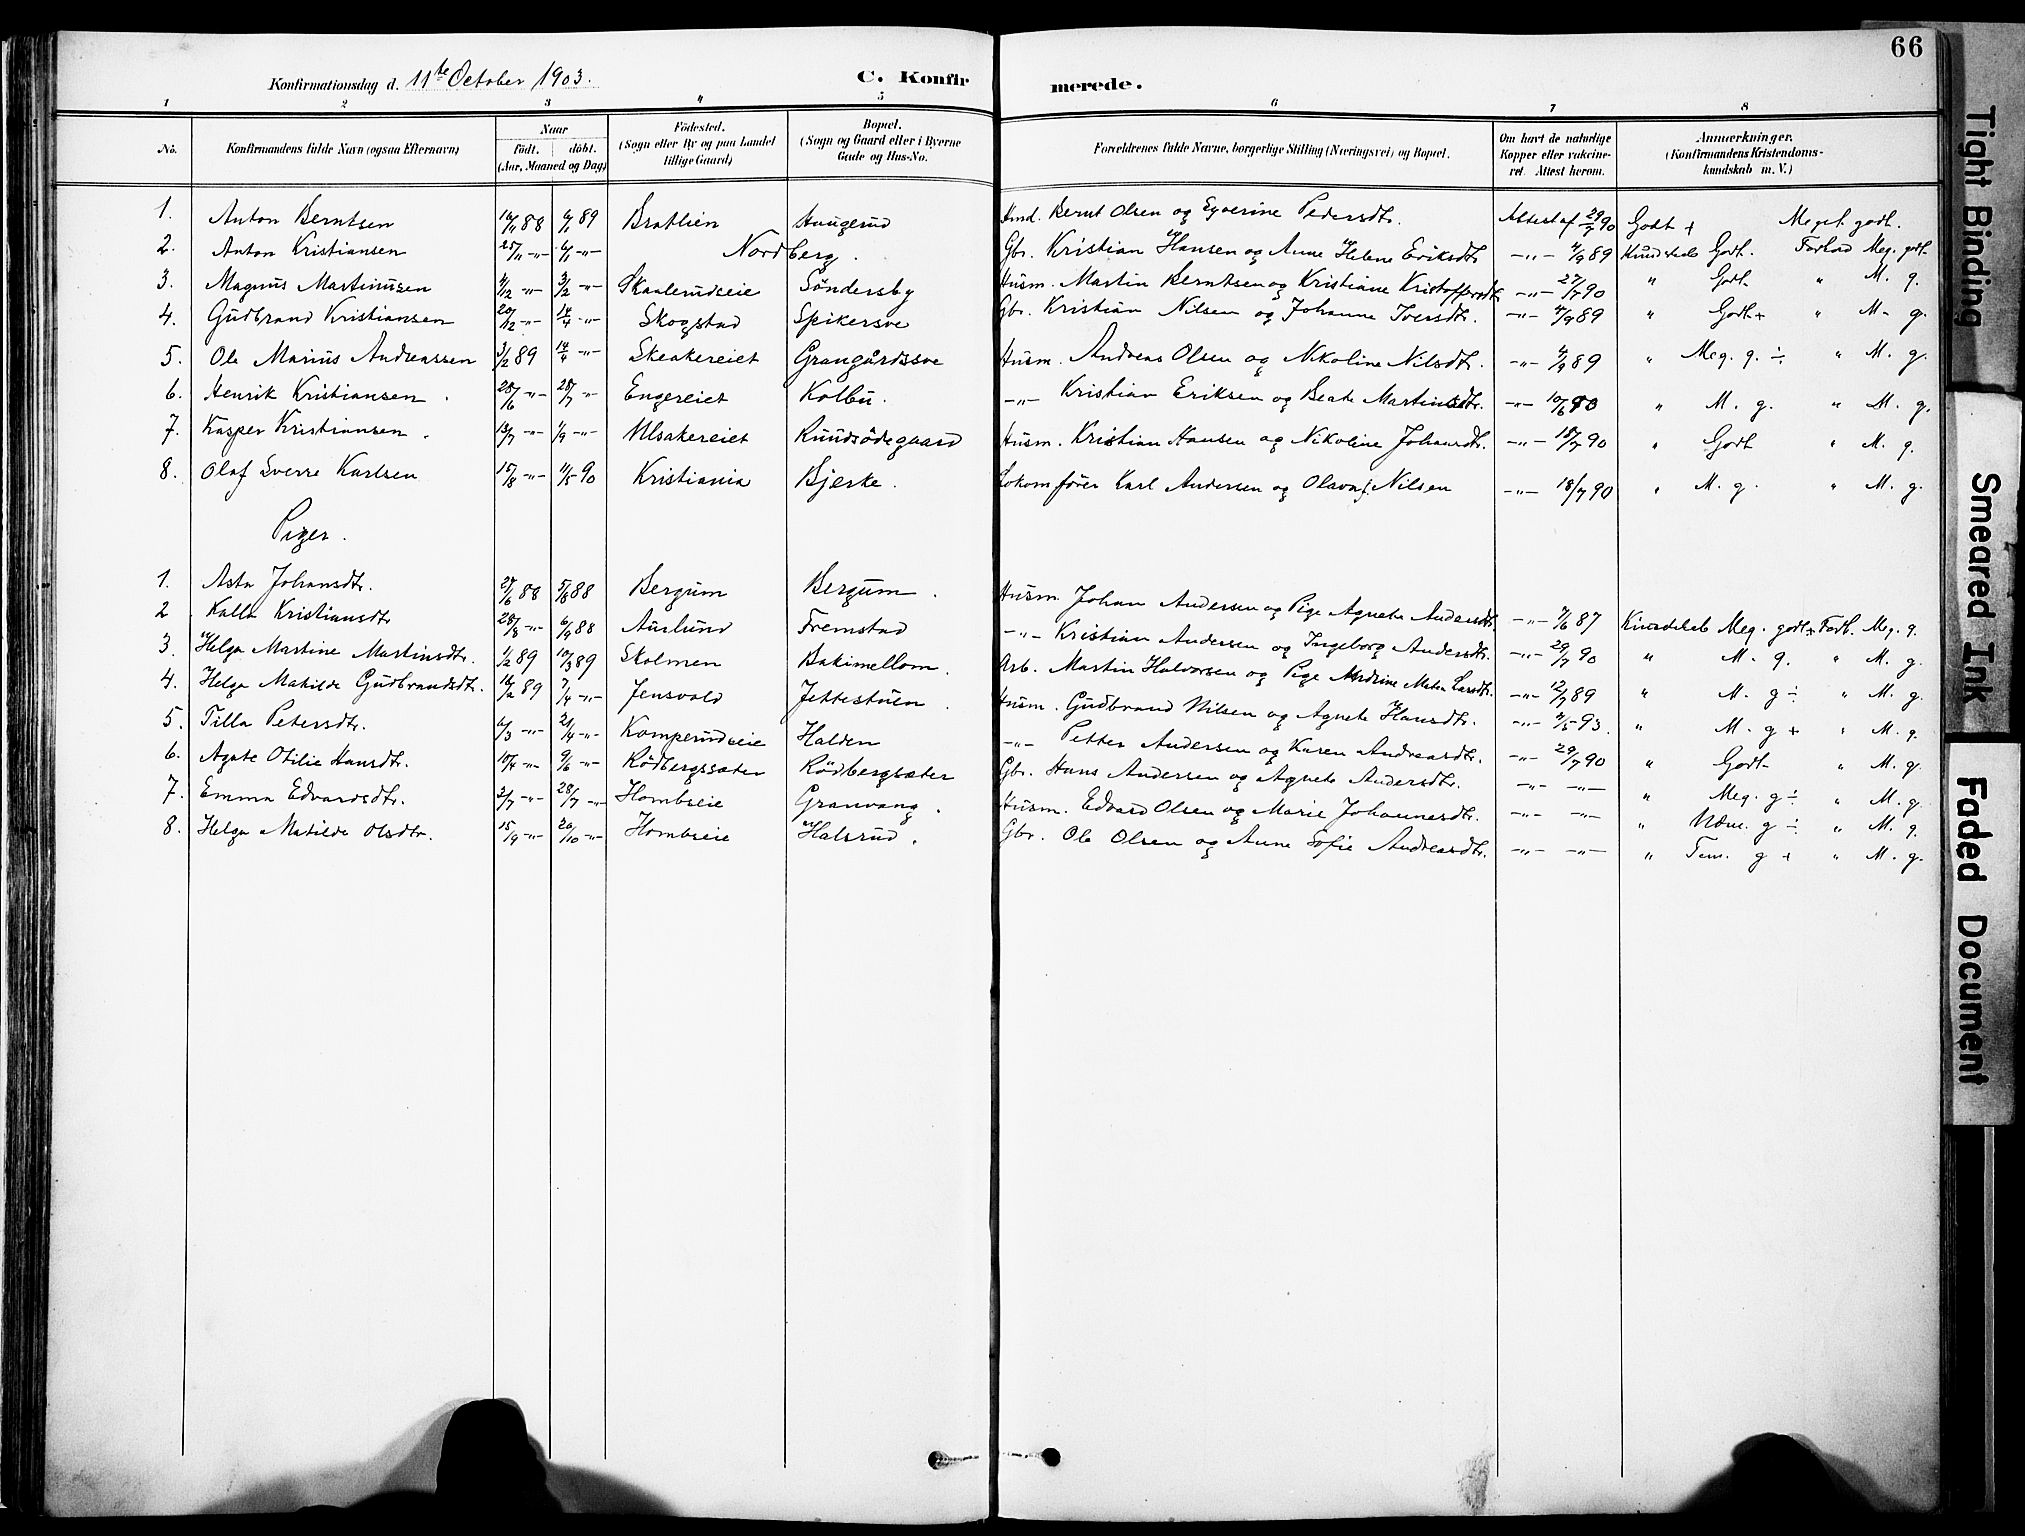 66
Konfirmationsdag d. 11te October 1903.
C. Konfir
merede.
1 2 3 4 5 6 7 8
No.
Konfirmandens fulde Navn (ogsaa Efternavn)
Naar
födt. döbt.
(Aar, Maaned og Dag)
Födested.
(Sogn eller By og paa Landet
tillige Gaard)
Bopæl.
(Sogn og Gaard eller i Byerne
Gade og Hus-No.
Forældrenes fulde Navne, borgerlige Stilling (Næringsvei) og Bopæl.
Om havt de naturlige
Kopper eller vakcine-
ret. Attest herom.
Anmærkninger.
(Konfirmandens Kristendoms-
kundskab m. V.)
1. Anton Berntsen 88 6/1 89 Bratlien Haugerud Hmd. Bernt Olsen og Pedersdtr. Attest af 29/7 90 Godt + Meget godt.
2. Anton Kristiansen 25/11 -"- 6/1 -"- Nordberg. Gbr. Kristian Hansen og Anne Helene Eriksdtr -"- 4/9 89 Kundskab Godt. Forhold Meg. godt.
3. Magnus Martinusen 4/12 -"- 3/2 -"- Skaalerudseie Söndersby Husm. Martin Berntsen og Kristiane Kristoffersdtr -"- 27/7 90 " Godt " M. g.
4. Gudbrand Kristiansen 20/12 -"- 14/4 -"- Skogstad Spikersve Gbr. Kristian Nilsen og Johanne Iversdtr. -"- 4/9 89 " Godt + " M. g.
5. Ole Marius Andreassen 3/2 89 14/4 -"- Skeakereiet Grangårdssve Husm. Andreas Olsen og Nikoline Nilsdtr. -"- 4/9 89 " Meg. g. ÷ " M. g.
6. Henrik Kristiansen. 28/6 -"- 28/7 -"- Engereiet Kolbu. -"- Kristian Eriksen og Beate Martinsdtr. -"- 10/6 90 " M. g. " M. g.
7. Kasper Kristiansen. 13/7 -"- 1/9 -"- Ulsakereiet Ruudsödegaard Husm. Kristian Hansen og Nikoline Johansdtr. -"- 18/7 90 " Godt " M. g.
8. Olaf Sverre Karlsen 15/8 -"- 11/5 90 Kristiania Bjerke. Lokomfører Karl Andersen og Olava Nilsen -"- 18/7 90 " M. g. " M. g.
Piger.
1. Asta Johansdtr. 27/6 88 5/8 88 Bergum Bergum. Husm. Johan Andersen og Pige Agnete Andersdtr. -"- 7/6 87 Kundskab Meg. godt + Forh. Meg. g.
2. Kalla Kristiansdtr 28/8 -"- 6/9 88 Aurlund Fremstad -"- Kristian Andersen og Ingeborg Andersdtr. -"- 29/7 90 " M. g. " M. g.
3. Helga Martine Martinsdtr. 1/2 89 10/3 89 Skolmen Bakimellom. Arb. Martin Halvorsen og Pige Larsdtr. -"- 12/7 89 " M. g ÷ " M. g.
4. Helga Matilde Gudbrandsdtr. 16/2 89 7/4 -"- Jensvold Jettestuen. Husm. Gudbrand Nilsen og Agnete Hansdtr. -"- 4/5 93. " M. g + " M. g.
5. Tilla Petersdtr. 6/3 -"- 21/4 -"- Komperudseie Halden -"- Petter Andersen og Karen Andreasdtr. -"- 29/7 90 " Godt " M. g.
6. Agate Otilie Hansdtr. 10/4 -"- 9/6 -"- Rödbergssæter Rödbergsæter Gbr. Hans Andersen og Agnete Andersdtr. -"- -"- " Meg. g ÷ " M. g.
7. Emma Edvardsdtr. 2/7 -"- 28/7 -"- Hombseie Granvang. Husm. Edvard Olsen og Marie Johannesdtr. -"- -"- " g ÷ " M. g.
8. Helga Matilde Olsdtr. 15/9 -"- 20/10 -"- Hombseie Halsrud. Gbr. Ole Olsen og Anne Sofie Andreasdtr. -"- -"- " Tem. g + " M. g.
Tight Binding
Smeared Ink
Faded Document